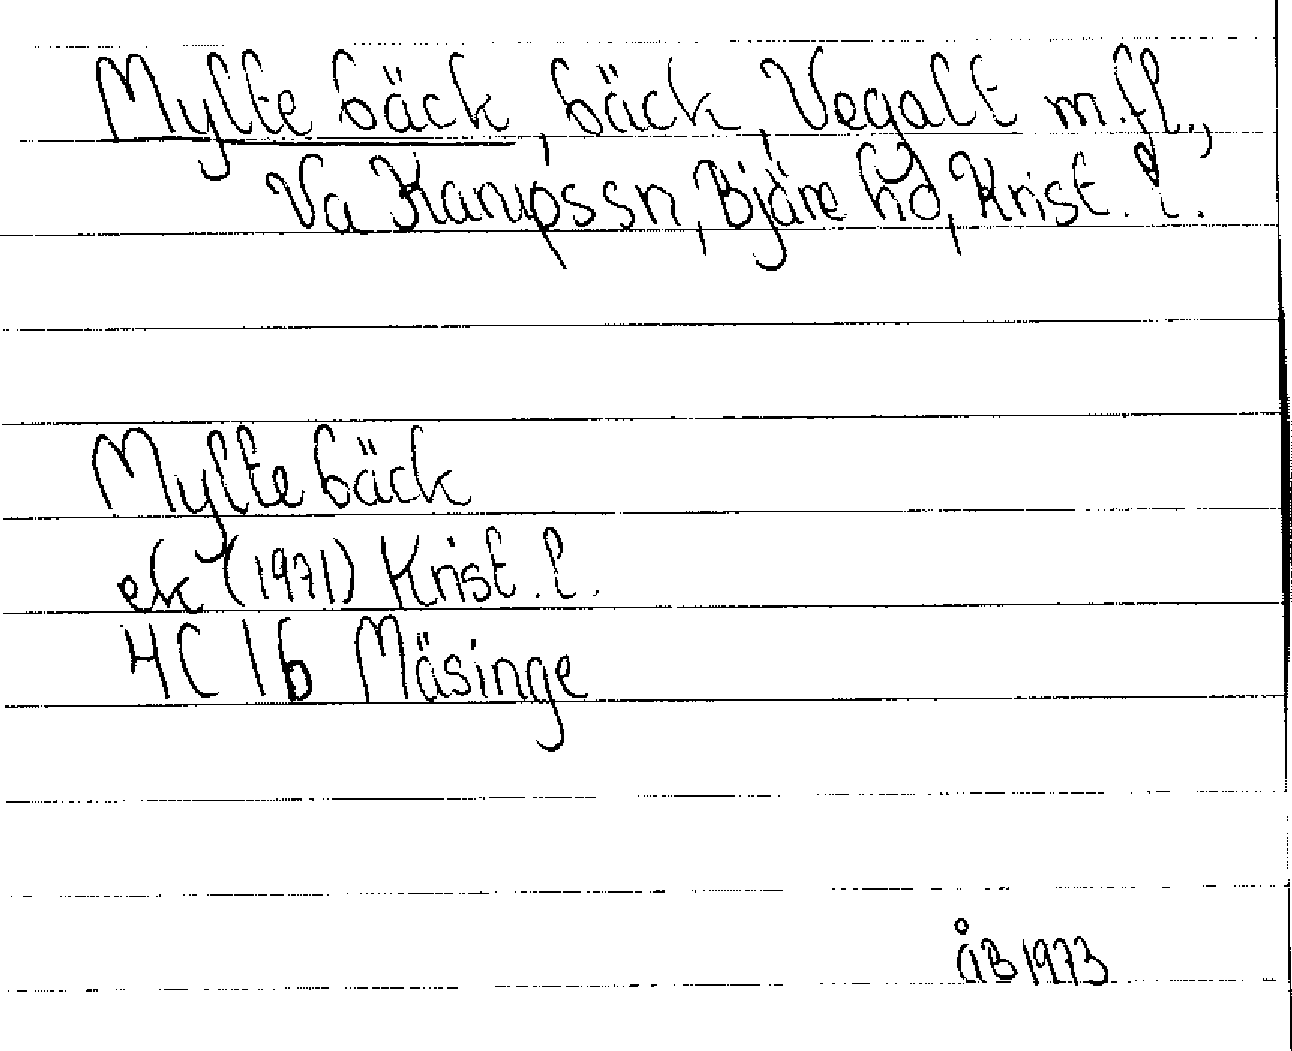 Myltebäck, bäck, Vegalt m.fl.,
Va Karupssn, Bjäre hd, Krist. l.
Myltebäck
ek (1971) Krist. l.
4C 1b Mäsinge
åB 1973